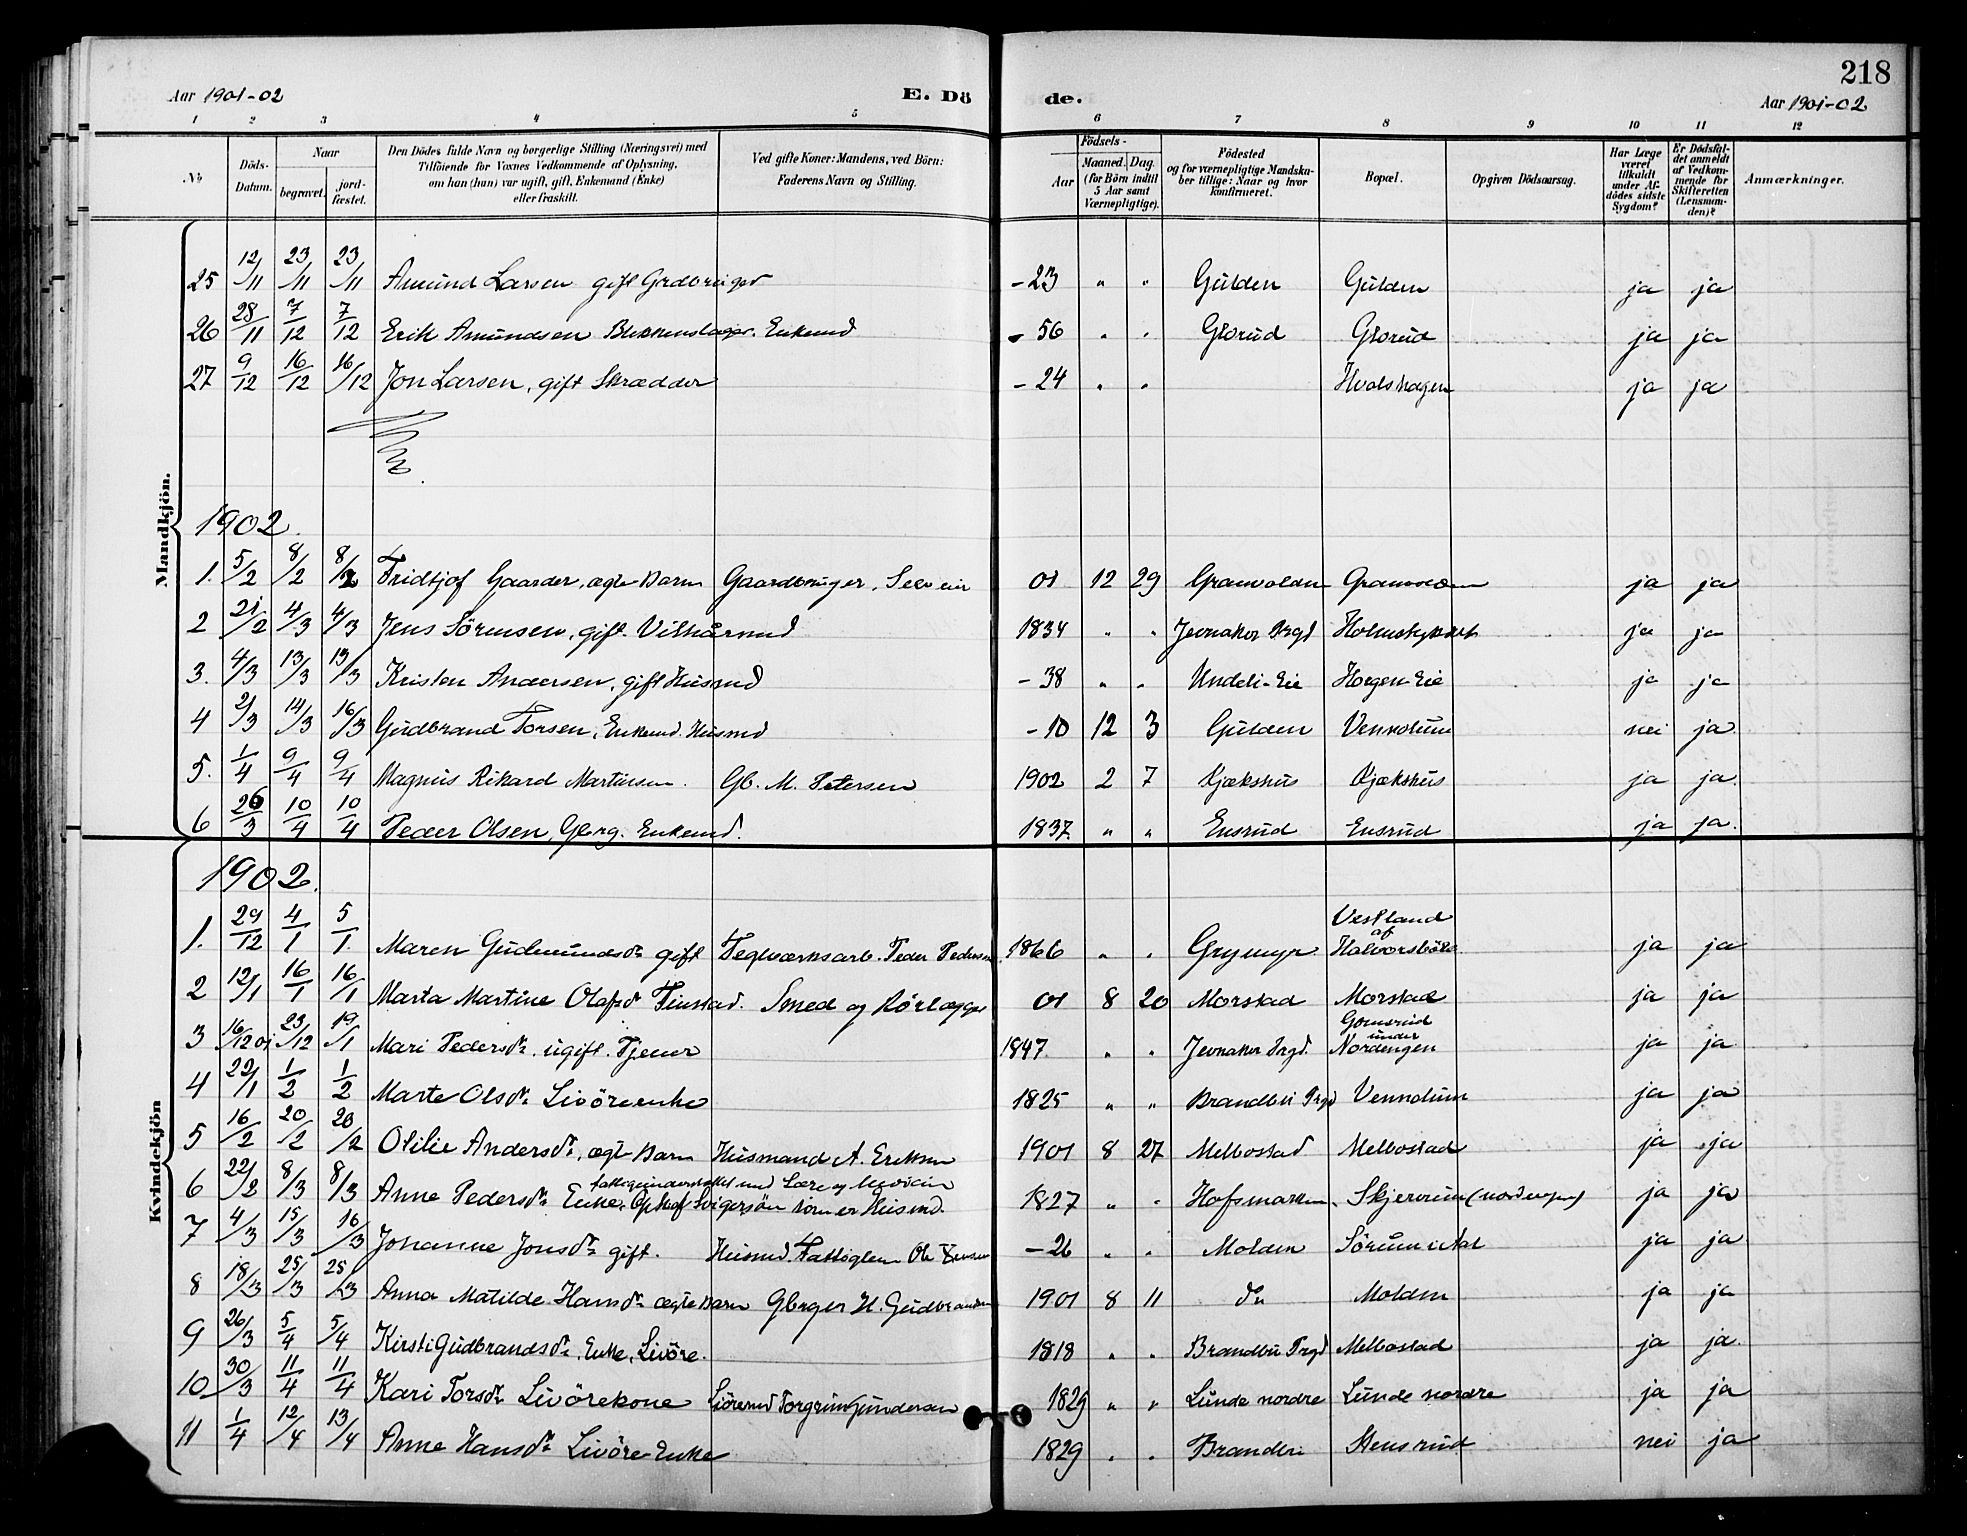 218
Aar 1901-02 E. Dö de. Aar 1901-02
1 2 3 4 5 6 7 8 9 10 11 12
№ Döds-Datum. Naar begravet. jord-fæstet. Den Dödes fulde Navn og borgerlige Stilling (Næringsvei) med Tilföiende for Voxnes Vedkommende af Oplysning, om han (hun) var ugift, gift, Enkemand (Enke) eller fraskilt. Ved gifte Koner: Mandens, ved Börn: Faderens Navn og Stilling. Födsels- Aar Maaned. Dag. (for Börn indtil 5 Aar samt Værnepligtige). Födested og for værnepligtige Mandska-ber tillige: Naar og hvor konfirmeret. Bopæl. Opgiven Dödsaarsag. Har Læge været tilkaldt under Af-dödes sidste Sygdom? Er Dödsfal-det anmeldt af Vedkom-mende for Skifteretten (Lensman-den)? Anmærkninger.
Mandkjön.
25 12/11 23/11 23/11 Amund Larsen gift Grdbruger -23 " " Gulden Gulden ja ja
26 28/11 7/12 7/12 Erik Amundsen Blikkenslager. Enkemd - 56 " " Glorud Glorud ja ja
27 9/12 16/12 16/12 Jon Larsen, gift Skrædder - 24 " " Hvalshagen ja ja
1902.
1. 5/2 8/2 8/2 Fridtjof Gaarder, ægte Barn Gaardbruger. 01 12 29 Granvolden ja ja
2 21/2 4/3 4/3 Jens Sörensen, gift. Vilkårmd 1834 " " Jevnaker Prgd Holmstykket ja ja
3. 4/3 13/3 13/3 Kristen Andersen, gift Husmd - 38 " " Undeli-Eie Horgen-Eie ja ja
4 2/3 14/3 16/3 Gudbrand Torsen, Enkemd. Husmd - 10 12 3 Gulden Vennolum nei ja
5. 1/4 9/4 9/4 Magnus Rikard Martinsen. Gb. M. Petersen 1902 2 7 Kjækshus Kjækshus ja ja.
6 26/3 10/4 10/4 Peder Olsen, Gbrg. Enkemd. 1837. " " Ensrud Ensrud ja ja.
Kvindekjön
1902.
1. 29/12 4/1 5/1. Maren Gudmundsdr gift Teglværksarb. Peder Pedersen 1866 " " Grymyr Vestland af Halvorsböle ja ja
2 12/1 16/1 16/1 Marta Martine Olafsdr Finstad. Smed og Rörlægger 01 8 20 Morstad Morstad ja ja
3 16/12 01 23/12 19/1 Mari Pedersdr. ugift. Tjener 1847 " " Jevnaker Prgd. Gomerud under Nordengen ja ja
4 22/1 1/2 1/2 Marte Olsdr. Livöreenke 1825 " " Brandbu Prgd Vennolum ja ja
5 16/2 20/2 20/2 Otilie Andersdr., ægte Barn Husmand A. Eriksen 1901 8 27 Melbostad Melbostad ja ja
6 22/2 8/3 8/3 Anne Pedersdr Enke, fattigunderstöttet med Læge og Medicin Svigersön som er Husmd. 1827 " " Hofsmarken Skjervum ja ja
7 4/3 15/3 16/3 Johanne Jonsdr gift. Husmd. Fattiglem Ole -26 " " Molden ja ja
8 18/3 25/3 25/3 Anna Matilde Hansdr. ægte Barn Gbrger H. Gudbrandsen 1901 8 11 do Molden ja ja
9 26/3 5/4 5/4 Kirsti Gudbrandsdr. Enke, Livöre. 1818 " " Brandbu Prgd Melbostad ja ja.
10 30/3 11/4 11/4 Kari Torsdr Livörekone Livöremd Torgrim Gundersen 1829 " " Lunde nordre Lunde nordre ja ja
11 1/4 12/4 13/4 Anne Hansdr Livöre Enke 1829 " " Brandbu Stensrud nei ja